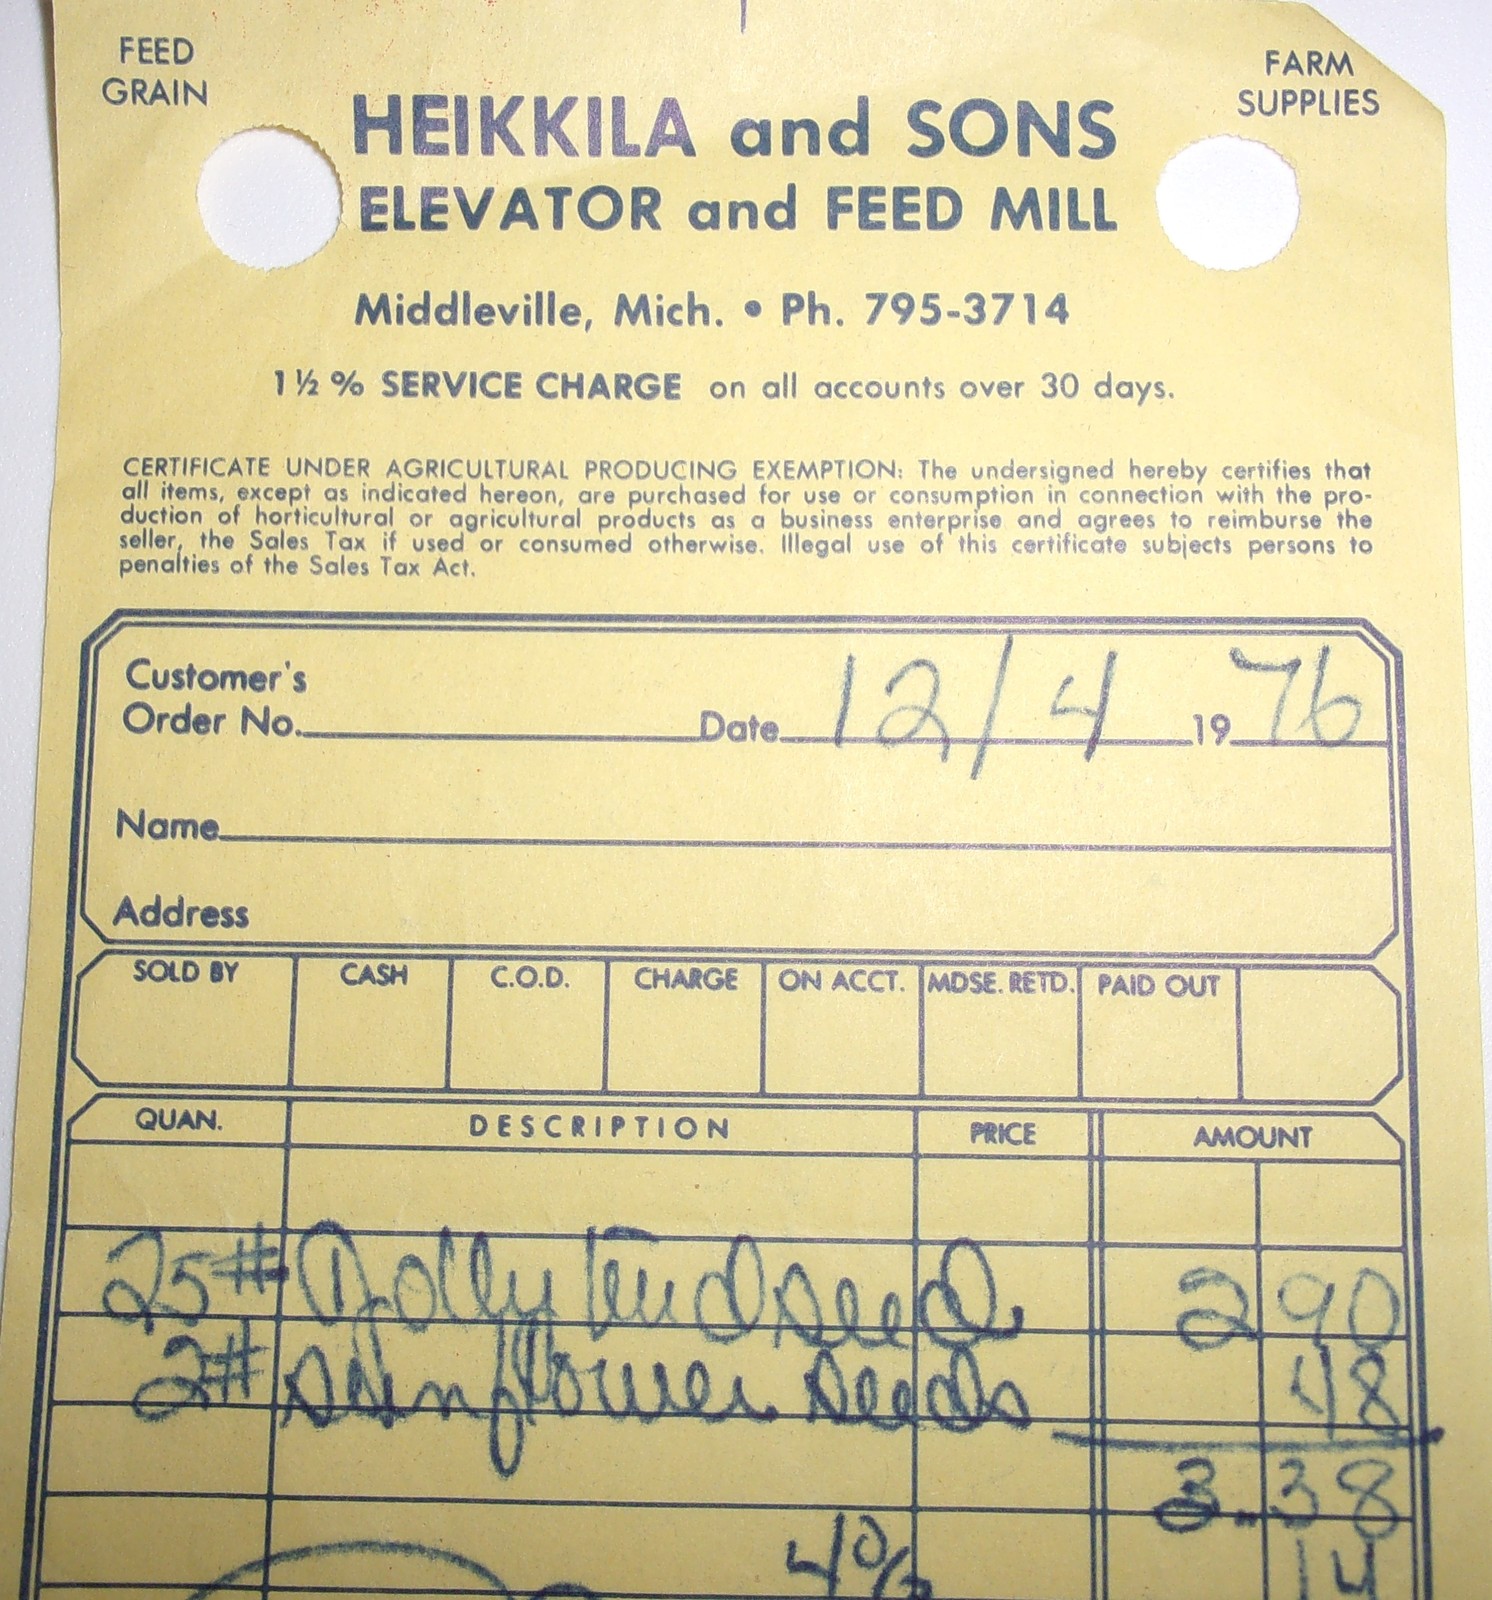 FEED GRAIN
FARM SUPPLIES
HEIKKILA and SONS
ELEVATOR and FEED MILL
Middleville, Mich. • Ph. 795-3714
1½ % SERVICE CHARGE on all accounts over 30 days.
CERTIFICATE UNDER AGRICULTURAL PRODUCING EXEMPTION: The undersigned hereby certifies that
all items, except as indicated hereon, are purchased for use or consumption in connection with the pro-
duction of horticultural or agricultural products as a business enterprise and agrees to reimburse the
seller, the Sales Tax if used or consumed otherwise. Illegal use of this certificate subjects persons to
penalties of the Sales Tax Act.
Customer's
Order No. Date 12/4 19 76
Name
Address
SOLD BY CASH C.O.D. CHARGE ON ACCT. MDSE. RETD. PAID OUT
QUAN. DESCRIPTION PRICE AMOUNT
25# Dolly seed 2 90
2# sunflower seeds 48
3. 38
4% 14